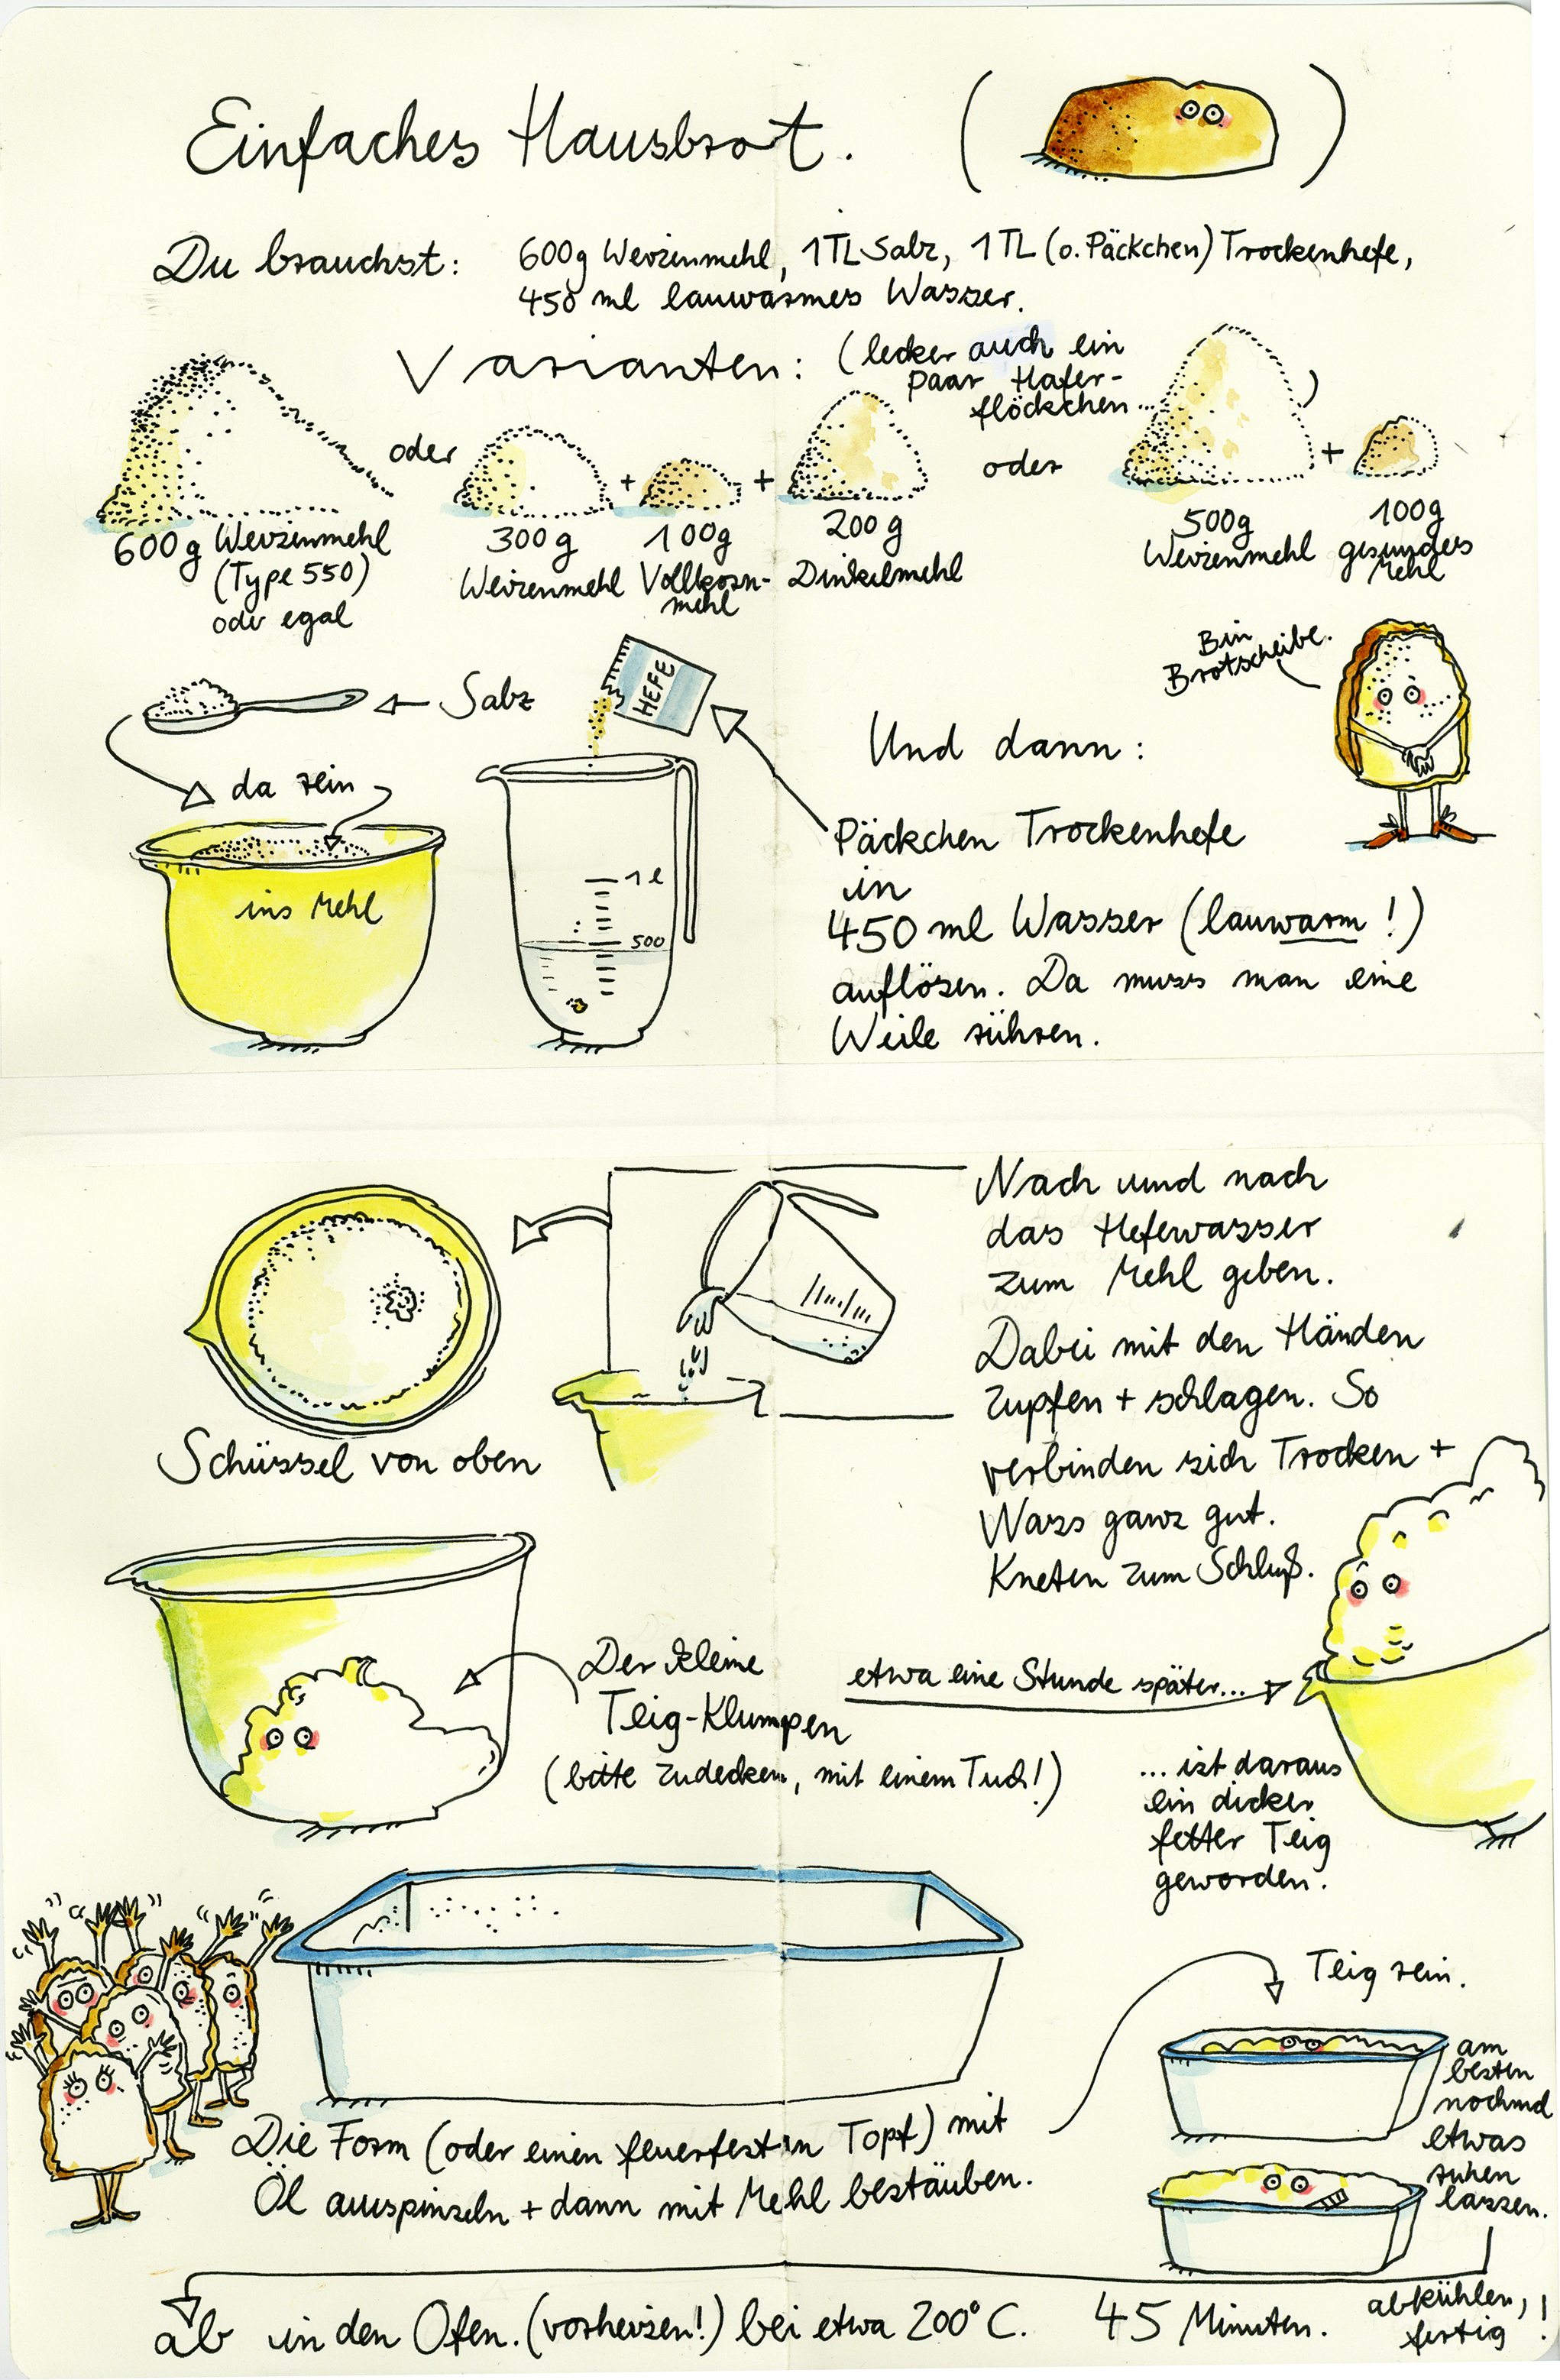 Einfaches Hausbrot.
Du brauchst: 600g Weizenmehl, 1TL Salz, 1TL (o. Päckchen) Trockenhefe,
450 ml lauwarmes Wasser.
Varianten: (lecker auch ein
paar Hafer-
flöckchen...)
oder
+
+
oder
+
600g Weizenmehl
(Type 550)
oder egal
300g
Weizenmehl
100g
Vollkorn-
mehl
200g
Dinkelmehl
500g
Weizenmehl
100g
gesundes
Mehl
Bin
Brotscheibe.
Salz
HEFE
da rein
ins Mehl
1 l
500
Und dann:
Päckchen Trockenhefe
in
450 ml Wasser (lauwarm!)
auflösen. Da muss man eine
Weile rühren.
Nach und nach
das Hefewasser
zum Mehl geben.
Dabei mit den Händen
zupfen + schlagen. So
verbinden sich Trocken +
Nass ganz gut.
Kneten zum Schluß.
Schüssel von oben
Der kleine
Teig-Klumpen
(bitte zudecken, mit einem Tuch!)
etwa eine Stunde später...
... ist daraus
ein dicker
fetter Teig
geworden.
Teig rein.
am
besten
nochmal
etwas
ruhen
lassen.
Die Form (oder einen feuerfesten Topf) mit
Öl auspinseln + dann mit Mehl bestäuben.
ab in den Ofen. (vorheizen!) bei etwa 200°C. 45 Minuten.
abkühlen,
fertig!